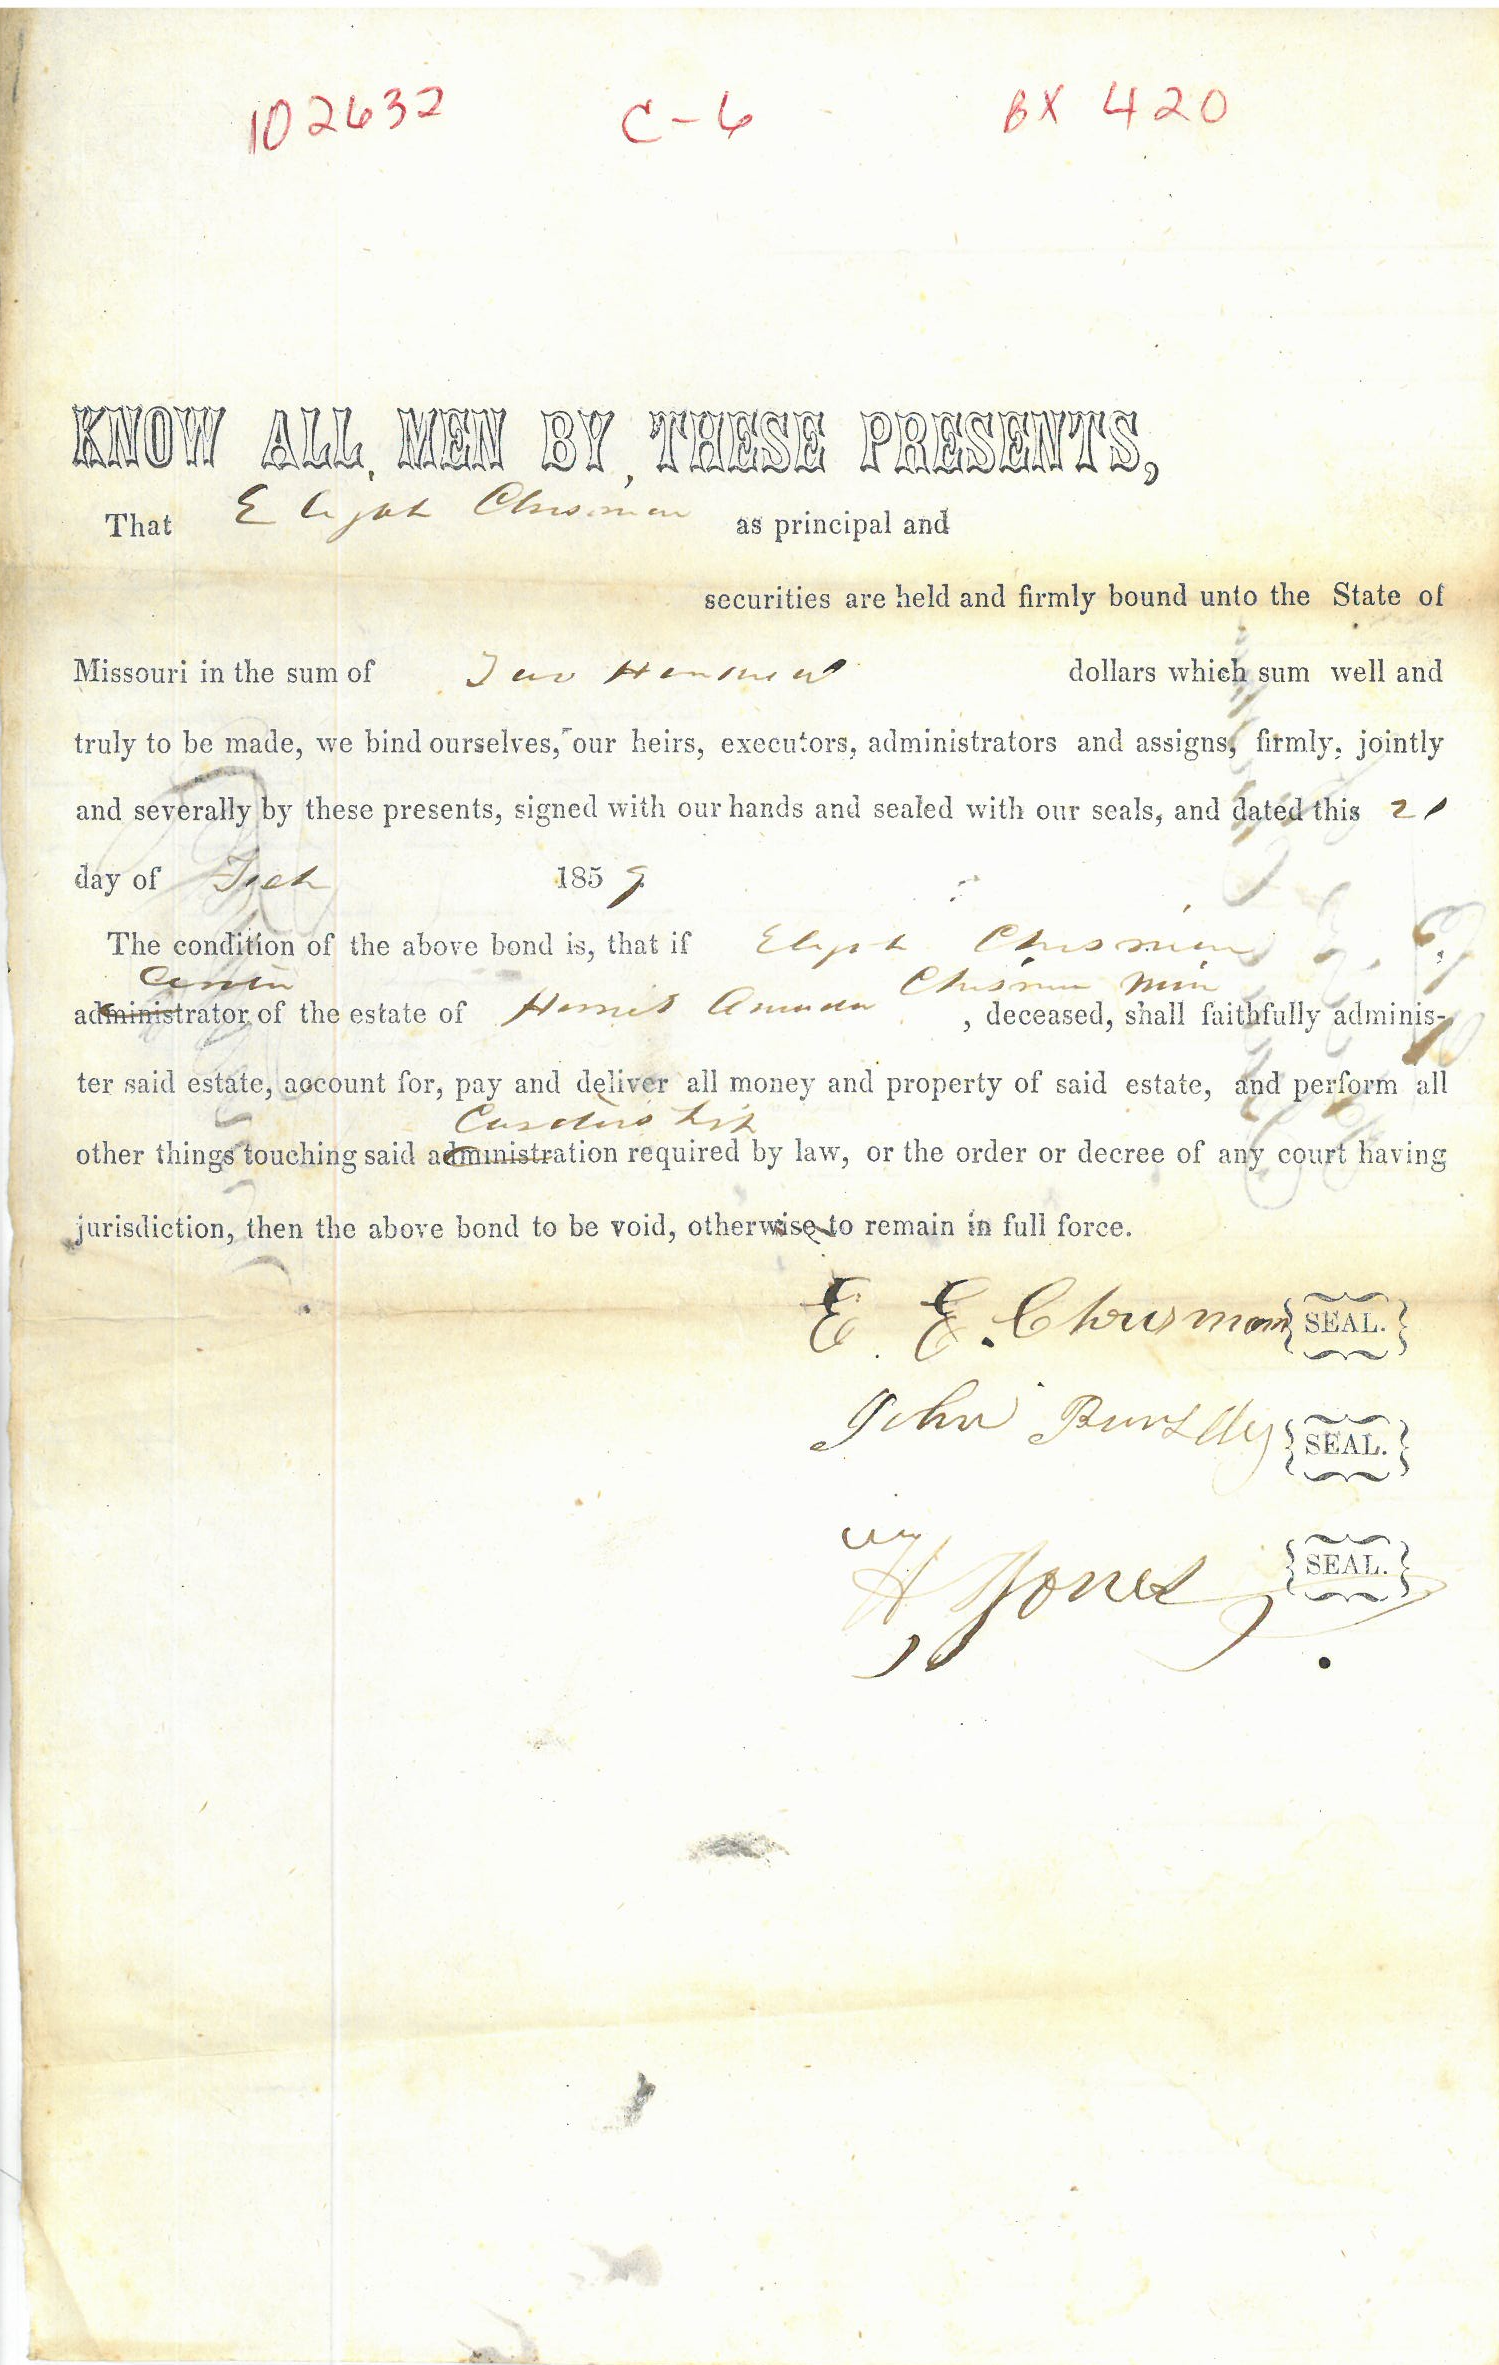 102632 C-6 BX 420
KNOW ALL MEN BY THESE PRESENTS,
That Elijah Chrisman as principal and
securities are held and firmly bound unto the State of
Missouri in the sum of Two Hundred dollars which sum well and
truly to be made, we bind ourselves, our heirs, executors, administrators and assigns, firmly, jointly
and severally by these presents, signed with our hands and sealed with our seals, and dated this 21
day of 1859
The condition of the above bond is, that if Elijah Chrisman
Chrisman
administrator of the estate of Amanda , deceased, shall faithfully adminis-
ter said estate, account for, pay and deliver all money and property of said estate, and perform all
other things touching said administration required by law, or the order or decree of any court having
jurisdiction, then the above bond to be void, otherwise to remain in full force.
E. E. Chrisman SEAL.
John SEAL.
Wm
H Jones SEAL.